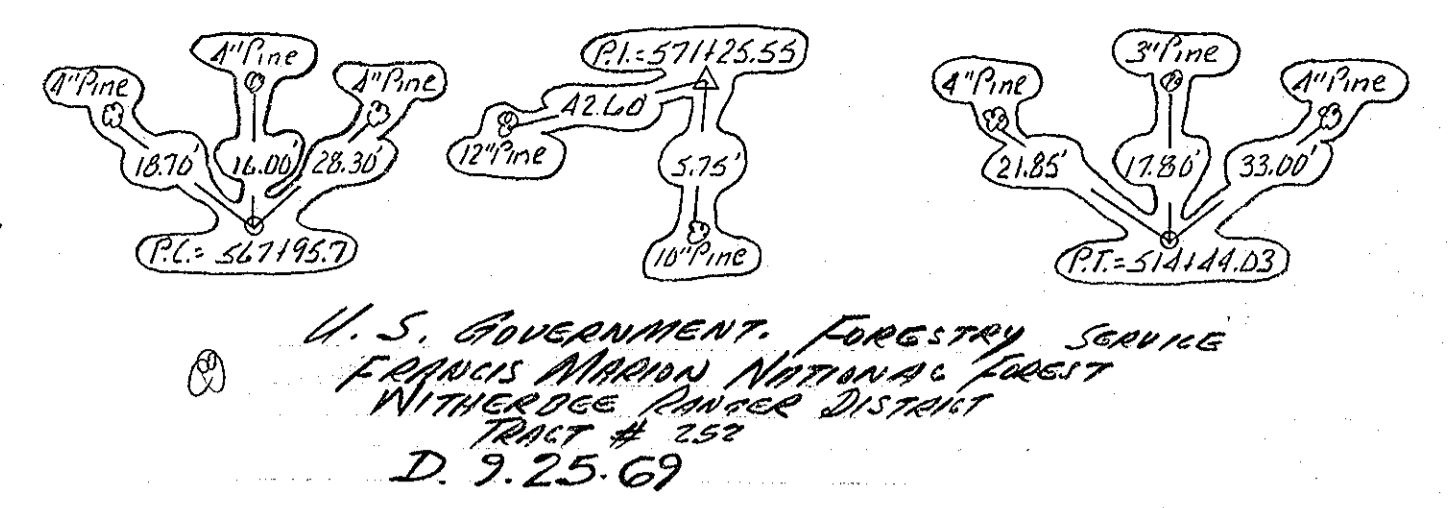 4"Pine
4"Pine
4"Pine
18.70'
16.00'
28.30'
P.C.= 567+95.7
P.I.=571+25.55
42.60'
12"Pine
5.75'
10"Pine
4"Pine
3"Pine
4"Pine
21.85'
17.80'
33.00'
P.T.=514+44.03
U.S. GOVERNMENT. FORESTRY SERVICE
FRANCIS MARION NATIONAL FOREST
WITHERDGEE RANGER DISTRICT
TRACT # 252
D. 9.25.69